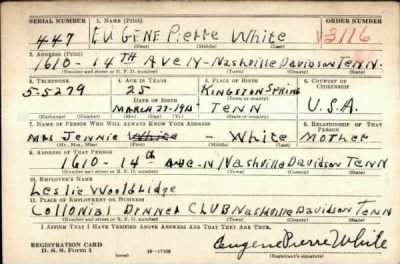 SERIAL NUMBER 1. NAME (Print) ORDER NUMBER
447 EUGENE Pierre White V3116
(First) (Middle) (Last)
2. ADDRESS (Print)
1610-14TH AVE N-Nashville Davidson TENN.
(Number and street or R. F. D. number) (Town) (County) (State)
3. TELEPHONE 4. AGE IN YEARS 5. PLACE OF BIRTH 6. COUNTRY OF CITIZENSHIP
5-5279 25 KINGSTON SPRING
DATE OF BIRTH (Town or county)
MARCH 27-1915 TENN U.S.A.
(Exchange) (Number) (Mo.) (Day) (Yr.) (State or country)
7. NAME OF PERSON WHO WILL ALWAYS KNOW YOUR ADDRESS 8. RELATIONSHIP OF THAT PERSON
MRS Jennie White - White Mother
(Mr., Mrs., Miss) (First) (Middle) (Last)
9. ADDRESS OF THAT PERSON
1610-14th Ave-N Nashville Davidson TENN
(Number and street or R. F. D. number) (Town) (County) (State)
10. EMPLOYER'S NAME
Leslie Wooldridge
11. PLACE OF EMPLOYMENT OR BUSINESS
Collonial Dinner CLUB Nashville Davidson Tenn
(Number and street or R. F. D. number) (Town) (County) (State)
I AFFIRM THAT I HAVE VERIFIED ABOVE ANSWERS AND THAT THEY ARE TRUE.
REGISTRATION CARD
D. S. S. Form 1 16-17105 Eugene Pierre White
(Registrant's signature)